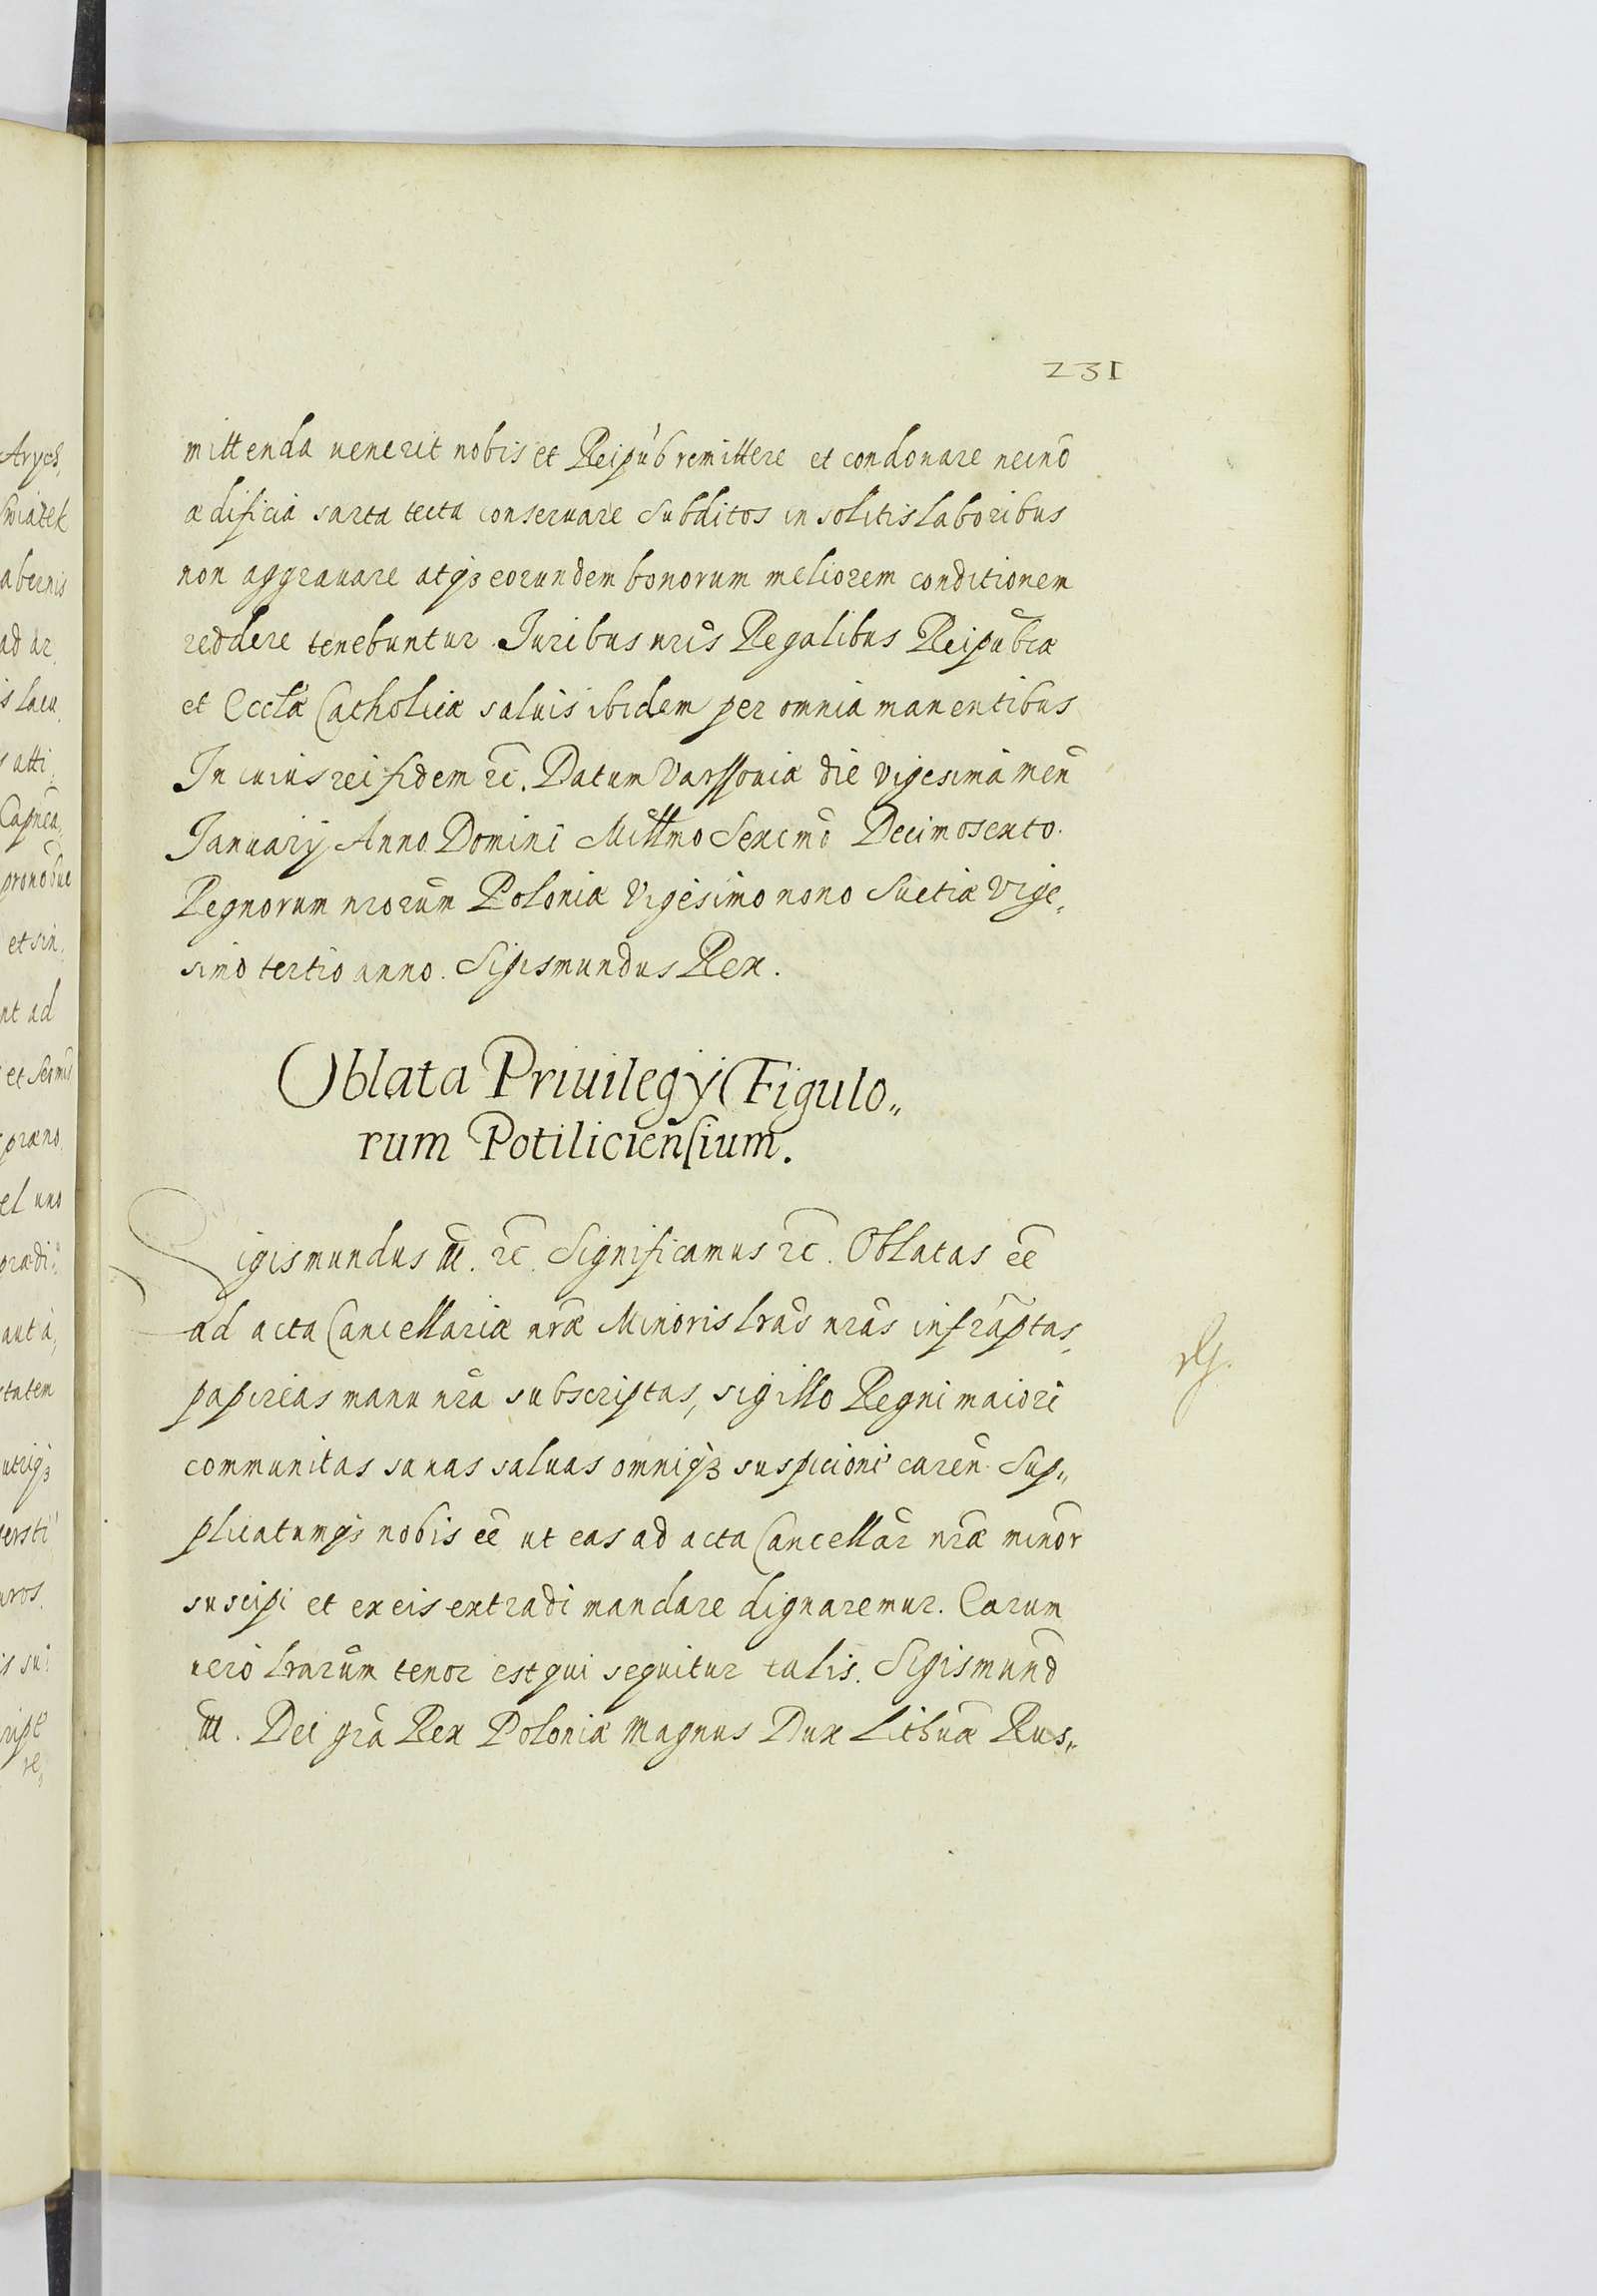 231
mittenda uenerit nobis et Reipub̃ remittere et condonare necnõ
ædificia sarta tecta conseruare Subditos insolitis laboribus
non aggrauare atqȝ eorundem bonorum meliorem conditionem
reddere tenebuntur. Iuribus nr̃is Regalibus Reipub̃cæ
et Eccl̃æ Catholicæ saluis ibidem per omnia manentibus
In cuius rei fidem &c̃. Datum Varssouiæ die vigesima men̄
Ianuarij Anno Domini Mill̃mo Sexcmõ Decimosexto.
Regnorum nr̃orum Poloniæ Vigesimo nono Suetiæ Vige„
simo tertio anno. Sigismundus Rex.
Oblata Priuilegij Figulo„
rum Potiliciensium.
Sigismundus III. &c̃. Significamus &c̃. Oblatas eẽ
ad acta Cancellariæ nr̃æ Minoris lr̃as nr̃as infrãptas,
papireas manu nr̃a subscriptas, sigillo Regni maiori
communitas sanas saluas omniqȝ suspicione caren̄. Sup„
plicatumqȝ nobis eẽ ut eas ad acta Cancellar̃ nr̃æ minor̃
suscipi et ex eis extradi mandare dignaremur. Earum
uero lr̃arum tenor est qui sequitur talis. Sigismund̃
III. Dei gr̃a Rex Poloniæ Magnus Dux Lithuæ̃ Rus„